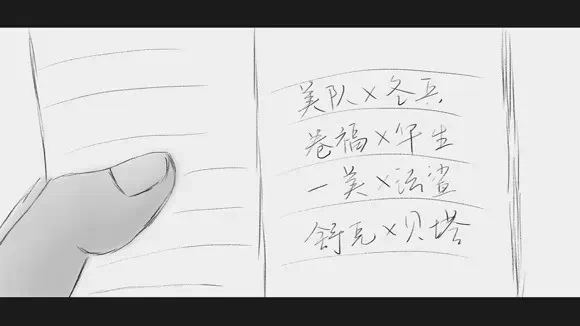 美队×冬兵
卷福×华生
一美×法鲨
舒克×贝塔